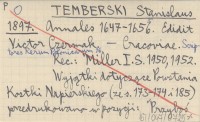 P TEMBERSKI Stanislaus
1897. Annales 1647-1656. Edidit
Victor Czermak, - Cracoviae. Scrip-
tores Rerum Polonicarum T.
Rec.: Miller I. S. 1950, 1952.
Wyjątki dotyczące Powstania
Kostki Napierskiego (ze s. 173-174 i 185)
przedrukowano w pozycji: Przyboś